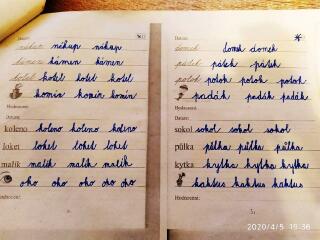 Datum:
nákup nákup nákup
kámen kámen kámen
hotel hotel hotel hotel
komín komín komín
Hodnocení:
Datum:
koleno koleno koleno koleno
loket loket loket loket
malík malík malík malík
oko oko oko oko oko
Hodnocení:
Datum:
domek domek domek
pátek pátek pátek
potok potok potok potok
padák padák padák
Hodnocení:
Datum:
sokol sokol sokol sokol
půlka půlka půlka půlka
kytka kytka kytka kytka
kaktus kaktus kaktus
Hodnocení:
2020/4/5 19:36